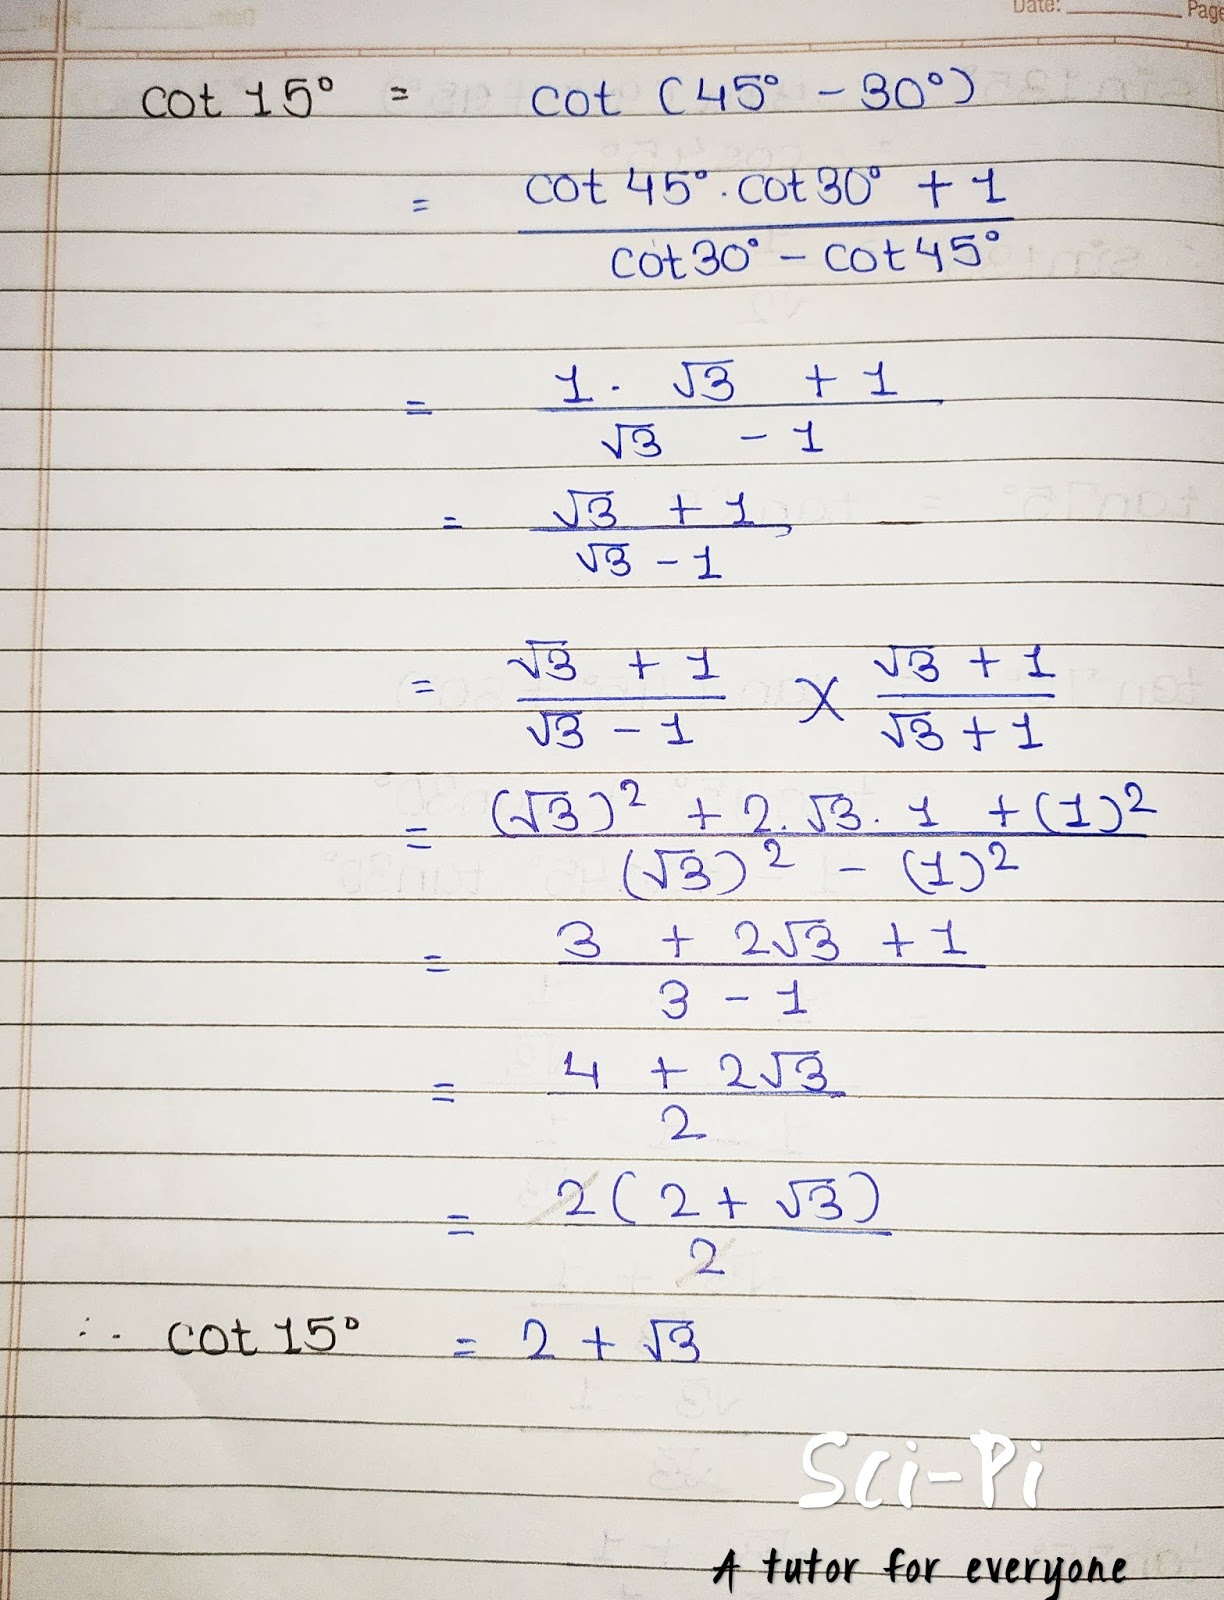 Date: Page
cot 15° = cot (45° - 30°)
= cot 45° . cot 30° + 1 / cot 30° - cot 45°
= 1 . √3 + 1 / √3 - 1
= √3 + 1 / √3 - 1
= √3 + 1 / √3 - 1 × √3 + 1 / √3 + 1
= (√3)² + 2.√3. 1 + (1)² / (√3)² - (1)²
= 3 + 2√3 + 1 / 3 - 1
= 4 + 2√3 / 2
= 2 ( 2 + √3 ) / 2
∴ cot 15° = 2 + √3
Sci-Pi
A tutor for everyone